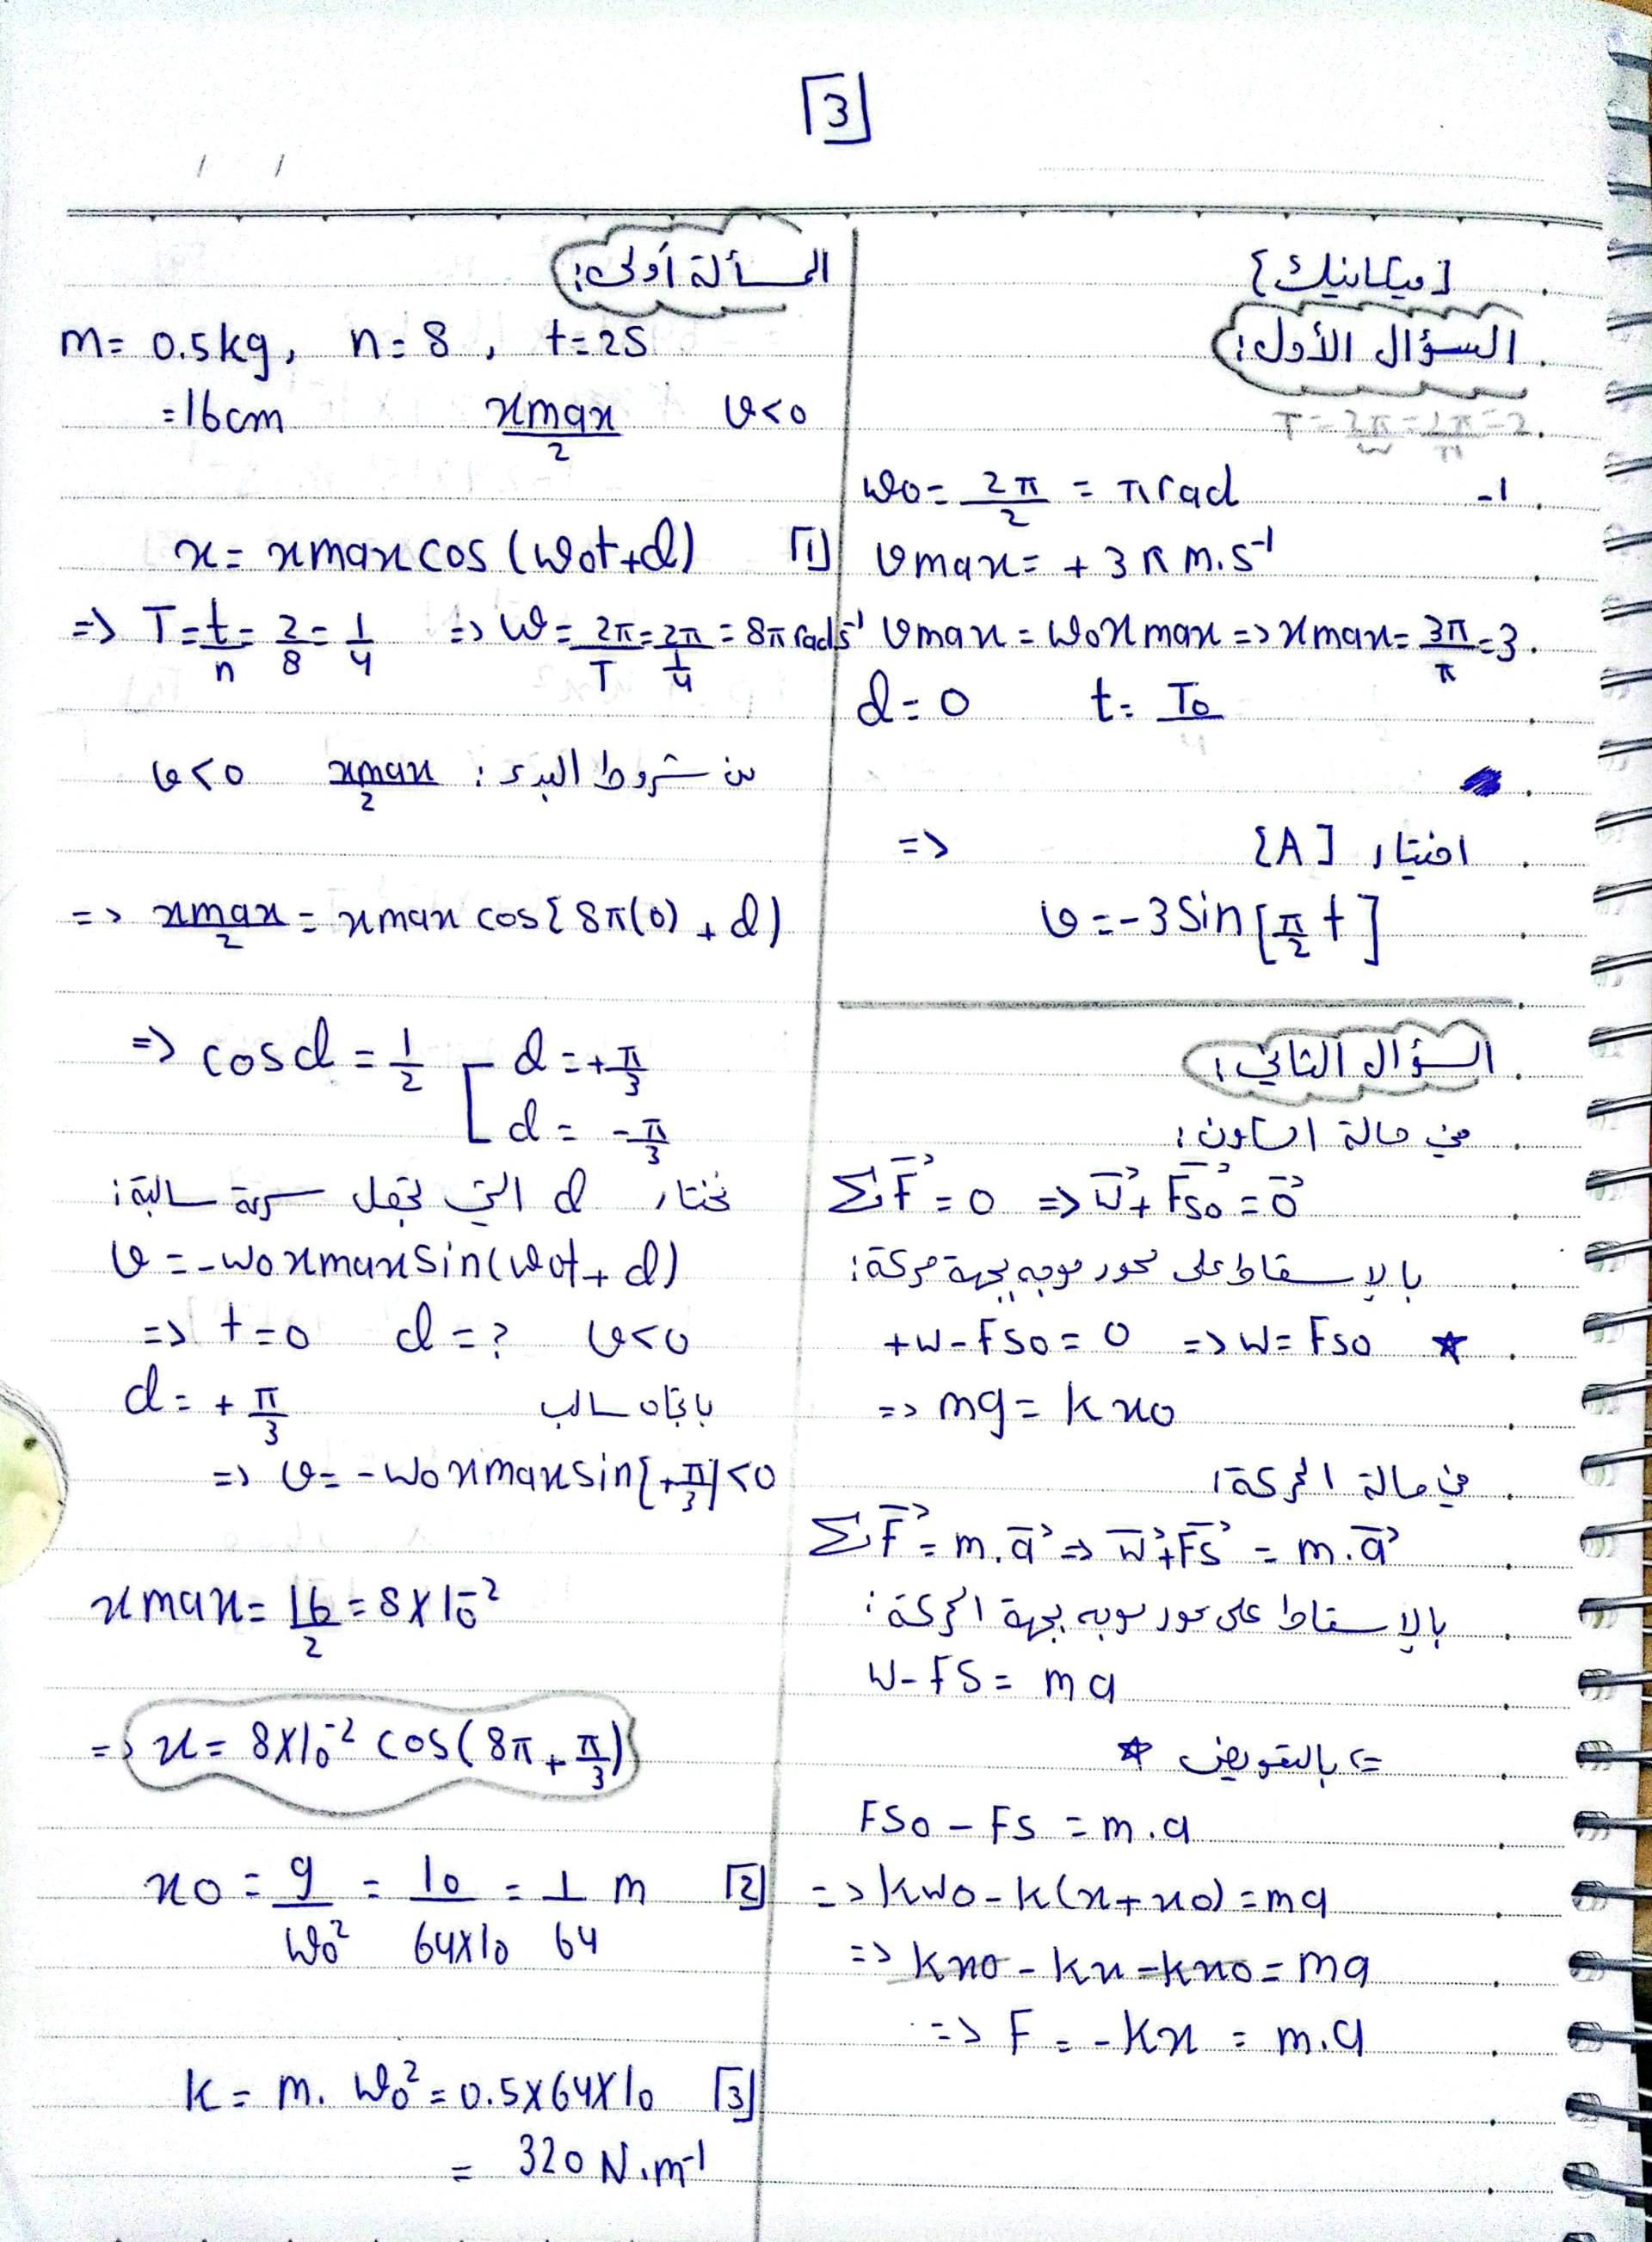 3
[ميكانيك]
السؤال الأول:
T = 2π/w = 2π/π = 2
1- ω0 = 2π/2 = π rad
vmax = + 3π m.s⁻¹
vmax = ω0 xmax => xmax = 3π/π = 3
d = 0 t = T0/4
=> اختيار [A]
v = -3 sin [π/2 t]
السؤال الثاني:
في حالة السكون:
ΣF⃗ = 0 => W⃗ + Fs0⃗ = 0⃗
بالإسقاط على محور موجه بجهة حركة:
+W - Fs0 = 0 => W = Fs0 *
=> mg = k x0
في حالة الحركة:
ΣF⃗ = m.a⃗ => W⃗ + Fs⃗ = m.a⃗
بالإسقاط على محور موجه بجهة الحركة:
W - Fs = ma
<= بالتعويض *
Fs0 - Fs = m.a
=> kw0 - k(x + x0) = ma
=> kx0 - kx - kx0 = ma
=> F = -kx = m.a
المسألة أولى:
m = 0.5 kg, n = 8, t = 2S
= 16cm xmax/2 v<0
[1] x = xmax cos (ω0t + d)
=> T = t/n = 2/8 = 1/4 => ω = 2π/T = 2π/(1/4) = 8π rad s⁻¹
من شروط البدء: xmax/2 v<0
=> xmax/2 = xmax cos[8π(0) + d)
=> cos d = 1/2 [ d = +π/3
d = -π/3
نختار d التي تجعل سرعة سالبة:
v = -ω0 xmax sin(ω0t + d)
=> t = 0 d = ? v<0
d = +π/3 باتجاه سالب
=> v = -ω0 xmax sin[+π/3] <0
xmax = 16/2 = 8×10⁻²
=> x = 8×10⁻² cos(8π + π/3)
[2] x0 = g/ω0² = 10/64×10 = 1/64 m
[3] k = m. ω0² = 0.5×64×10
= 320 N.m⁻¹